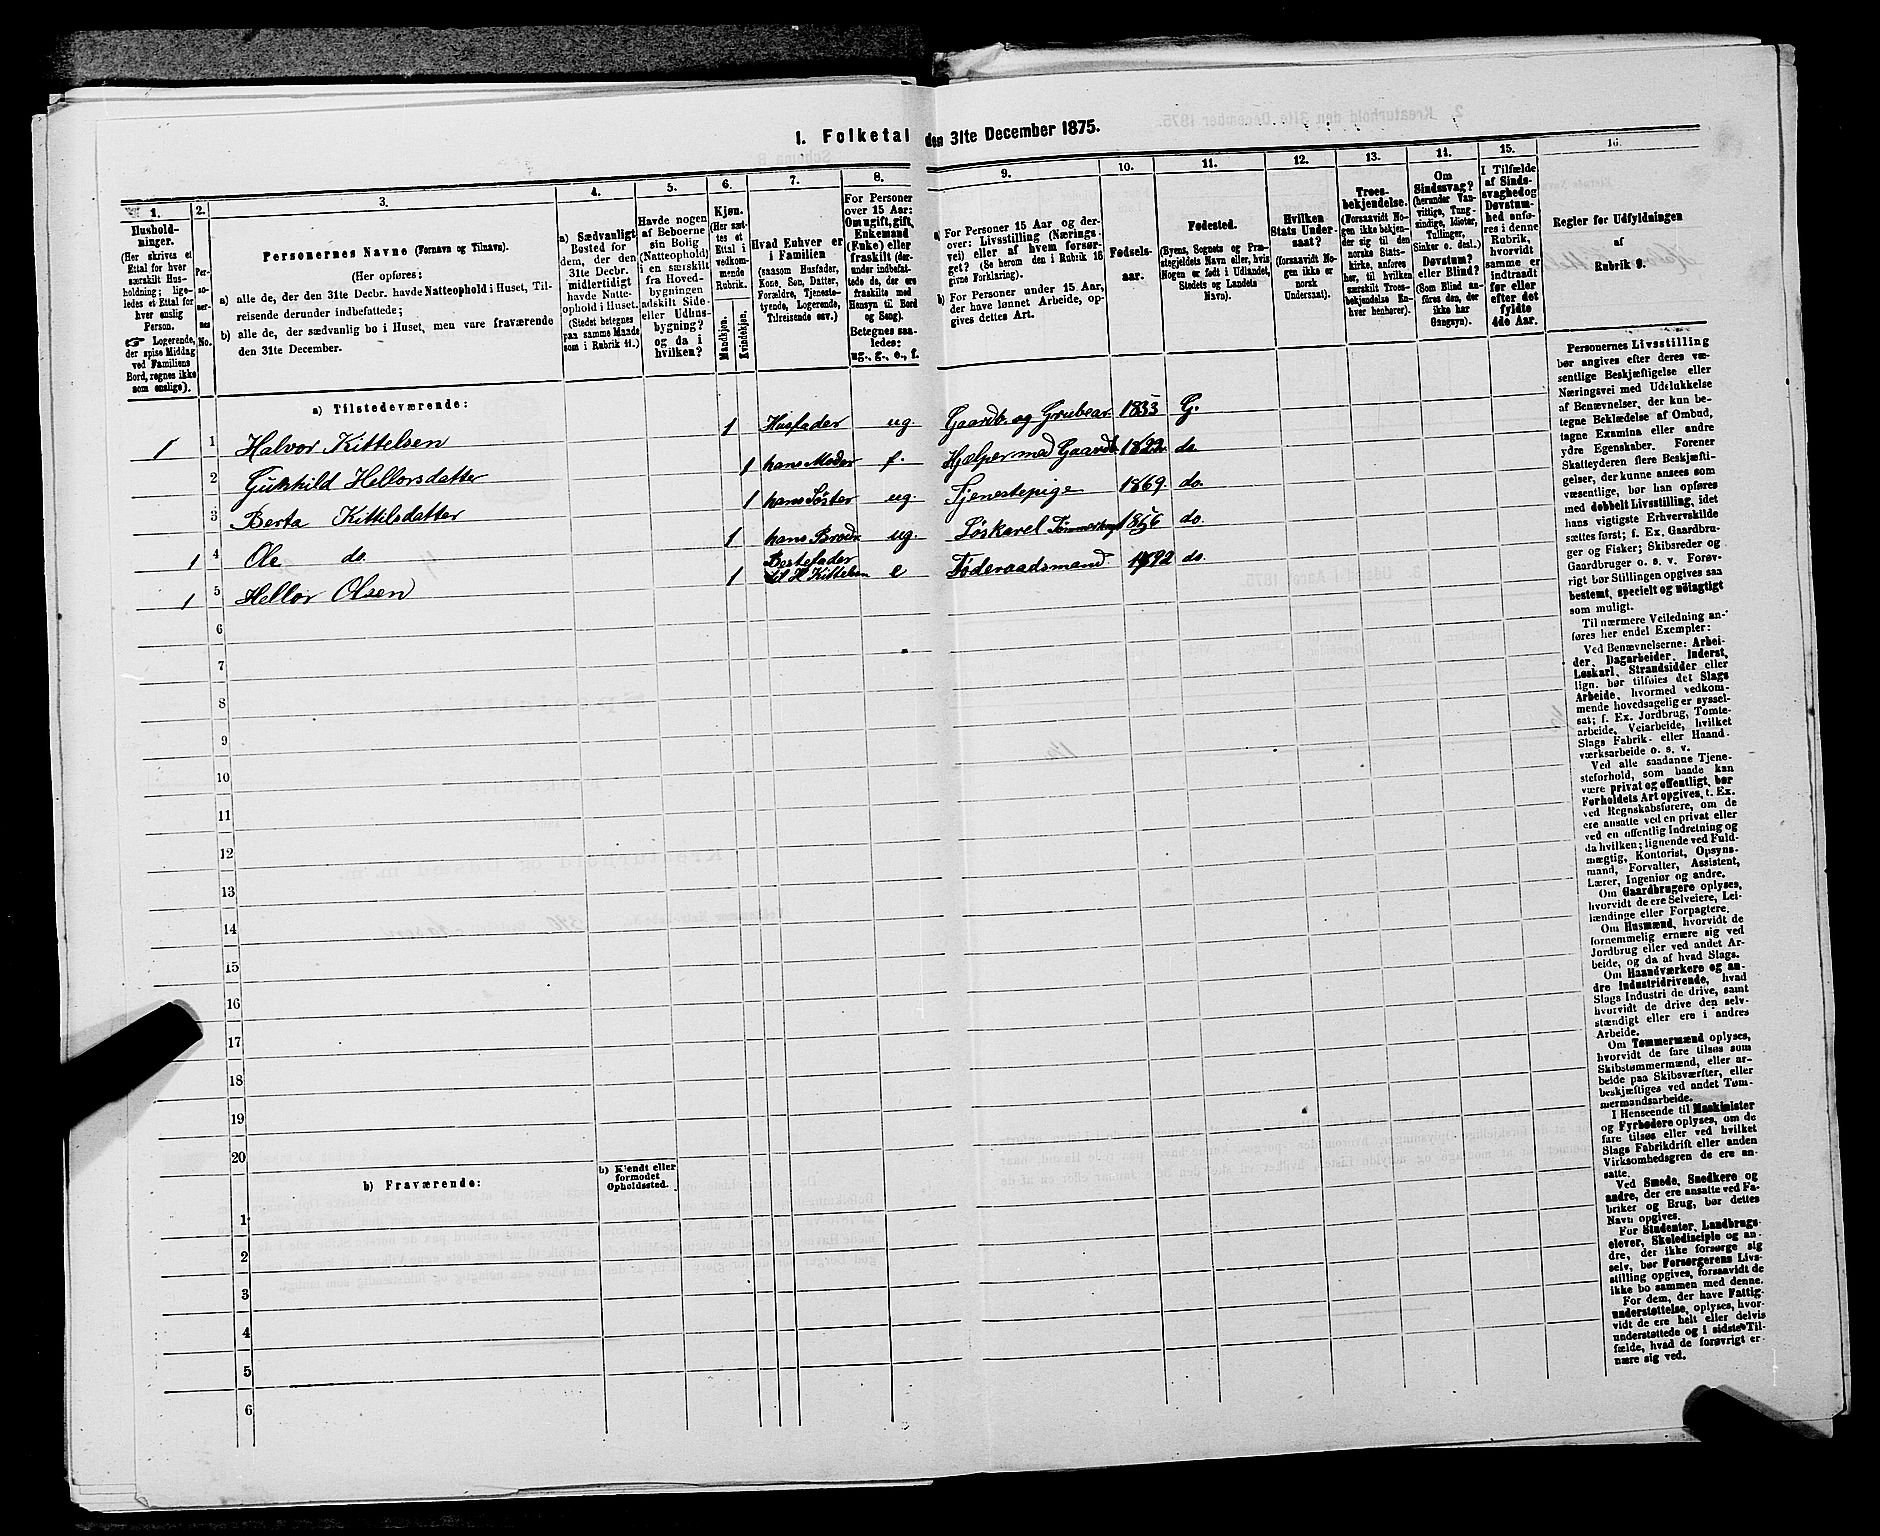 1. Folketal den 31te December 1875.
1. 2. 3. 4. 5. 6. 7. 8. 9. 10. 11. 12. 13. 14. 15. 16.
Hushold-
ninger.
(Her skrives et
Ettal for hver
særskilt Hus-
holdning; lige-
ledes et Ettal for
hver enslig
Person.
☞ Logerende,
der spise Middag
ved Familiens
Bord, regnes ikke
som enslige).
Per-
so-
ner-
nes
No.
Personernes Navne (Fornavn og Tilnavn).
(Her opføres:
a) alle de, der den 31te Decbr. havde Natteophold i Huset, Til-
reisende derunder indbefattede;
b) alle de, der sædvanlig bo i Huset, men vare fraværende
den 31te December.
a) Sædvanligt
Bosted for
dem, der den
31te Decbr.
midlertidigt
havde Natte-
ophold i Huset.
(Stedet betegnes
paa samme Maade
som i Rubrik 11.)
Havde nogen
af Beboerne
sin Bolig
(Natteophold)
i en særskilt
fra Hoved-
bygningen
adskilt Side-
eller Udhus-
bygning?
og da i
hvilken?
Kjøn.
(Her sæt-
tes et
Ettal i
vedkom-
mende
Rubrik.
Mandkjøn.
Kvindekjøn.
Hvad Enhver er
i Familien
(saasom Husfader,
Kone, Søn, Datter,
Forældre, Tjeneste-
tyende, Logerende,
Tilreisende osv.)
For Personer
over 15 Aar:
Om ugift, gift,
Enkemand
(Enke) eller
fraskilt (der-
under indbefat-
tede de, der ere
fraskilte med
Hensyn til Bord
og Seng).
Betegnes saa-
ledes:
ug., g., e., f.
a) For Personer 15 Aar og der-
over: Livsstilling (Nærings-
vei) eller af hvem forsør-
get? (Se herom den i Rubrik 16
givne Forklaring).
b) For Personer under 15 Aar,
der have lønnet Arbeide, op-
gives dettes Art.
Fødsels-
aar.
Fødested.
(Byens, Sognets og Præ-
stegjeldets Navn eller, hvis
Nogen er født i Udlandet,
Stedets og Landets
Navn).
Hvilken
Stats Under-
saat?
(forsaavidt No-
gen ikke er
norsk
Undersaat).
Troes-
bekjendelse.
(Forsaavidt No-
gen ikke bekjen-
der sig til den
norske Stats-
kirke, anføres
her, til hvilken
særskilt Troes-
bekjendelse En-
hver henhører).
Om
Sindssvag?
(herunder Van-
vittige, Tung-
sindige, Idioter,
Tullinger,
Sinker o. desl.)
Døvstum?
eller Blind?
(Som Blind an-
føres den, der
ikke har
Gangsyn).
I Tilfælde
af Sinds-
svaghed og
Døvstum-
hed anfø-
res i denne
Rubrik,
hvorvidt
samme er
indtraadt
før eller
efter det
fyldte
4de Aar.
Regler for Udfyldningen
af
Rubrik 9.
a) Tilstedeværende:
1 1 Halvor Kittelsen 1 Husfader ug. Gaardb. og Grubear. 1833 G.
2 Hellorsdatter 1 hans Moder f. Hjælper med Gaardb 1822 do.
3 Berta Kittilsdatter 1 hans Søster ug. Tjenestepige 1869. do.
1 4 Ole do. 1 hans Brodr ug. Løskarel 1856 do.
1 5 Hellor Olsen 1 Bestefader
til H Kittelsen e Føderaadsmand 1792 do.
6
7
8
9
10
11
12
13
14
15
16
17
18
19
20
b) Fraværende:
b) Kjendt eller
formodet
Opholdssted.
1
2
3
4
5
6
Personernes Livsstilling
bør angives efter deres væ-
sentlige Beskjæftigelse eller
Næringsvei med Udelukkelse
af Benævnelser, der kun be-
tegne Beklædelse af Ombud,
tagne Examina eller andre
ydre Egenskaber. Forener
Skatteyderen flere Beskjæfti-
gelser, der kunne ansees som
væsentlige, bør han opføres
med dobbelt Livsstilling, idet
hans vigtigste Erhvervskilde
sættes først; f. Ex. Gaardbru-
ger og Fisker; Skibsreder og
Gaardbruger o. s. v. Forøv-
rigt bør Stillingen opgives saa
bestemt, specielt og nøiagtigt
som muligt.
Til nærmere Veiledning an-
føres her endel Exempler:
Ved Benævnelserne: Arbei-
der, Dagarbeider, Inderst,
Løskarl, Strandsidder eller
lign. bør tilføies det Slags
Arbeide, hvormed vedkom-
mende hovedsagelig er syssel-
sat; f. Ex. Jordbrug, Tomte-
arbeide, Veiarbeide, hvilket
Slags Fabrik- eller Haand-
værksarbeide o. s. v.
Ved alle saadanne Tjene-
steforhold, som baade kan
være privat og offentligt, bør
Forholdets Art opgives, t. Ex.
ved Regnskabsførere, om de
ere ansatte ved en privat eller
ved en offentlig Indretning og
da hvilken; lignende ved Fuld-
mægtig, Kontorist, Opsyns-
mand, Forvalter, Assistent,
Lærer, Ingeniør og andre.
Om Gaardbrugere oplyses,
hvorvidt de ere Selveiere, Lei-
lændinge eller Forpagtere.
Om Husmænd, hvorvidt de
fornemmelig ernære sig ved
Jordbrug eller ved andet Ar-
beide, og da af hvad Slags.
Om Haandværkere og an-
dre Industridrivende, hvad
Slags Industri de drive, samt
hvorvidt de drive den selv-
stændigt eller ere i andres
Arbeide.
Om Tømmermænd oplyses,
hvorvidt de fare tilsøs som
Skibstømmermænd, eller ar-
beide paa Skibsværfter, eller
beskjæftiges ved andet Tøm-
mermandsarbeide.
I Henseende til Maskinister
og Fyrbødere oplyses, om de
fare tilsøs eller ved hvilket
Slags Fabrikdrift eller anden
Virksomhedsgren de ere an-
satte.
Ved Smede, Snedkere og
andre, der ere ansatte ved Fa-
briker og Brug, bør dettes
Navn opgives.
For Studenter, Landbrugs-
elever, Skoledisciple og an-
dre, der ikke forsørge sig
selv, bør Forsørgerens Livs-
stilling opgives, forsaavidt de
ikke bo sammen med denne.
For dem, der have Fattig-
understøttelse, oplyses, hvor-
vidt de ere helt eller delvis
understøttede og i sidste Til-
fælde, hvad de forøvrigt er-
nære sig ved.